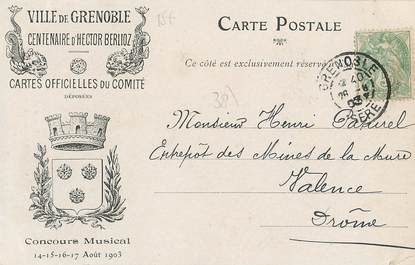 VILLE DE GRENOBLE
CENTENAIRE D'HECTOR BERLIOZ
CARTES OFFICIELLES DU COMITÉ
DÉPOSÉES
CARTE POSTALE
Ce côté est exclusivement réservé
GRENOBLE
ISÈRE
Monsieur Henri
Entrepôt des Mines de la Mure
Valence
Drôme
Concours Musical
14-15-16-17 Août 1903